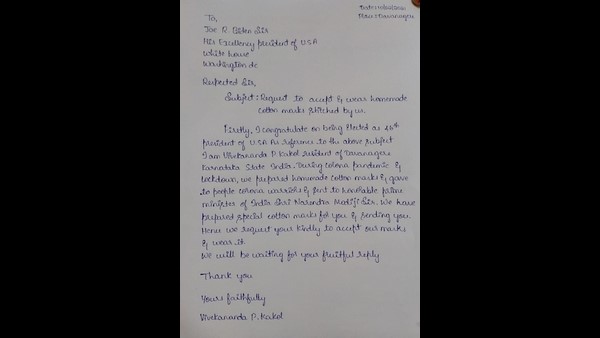 Place: Davanagere
To,
Joe R Biden Sir
His Excellency president of USA
White house
Washington dc
Respected Sir,
Subject: Request to accept & wear homemade
cotton masks stitched by us.
Firstly, I congratulate on being Elected as 46th
president of U.S.A As reference to the above subject
I am Vivekananda P. Kakol resident of Davanagere
Karnataka State India. During corona pandemic &
lockdown, we prepared homemade cotton masks & gave
to people corona warriors & sent to honorable prime
minister of India Shri Narendra Modiji Sir. We have
prepared special cotton masks for you & sending you.
Hence we request your kindly to accept our masks
& wear it.
We will be waiting for your fruitful reply
Thank you
Yours faithfully
Vivekananda P. Kakol